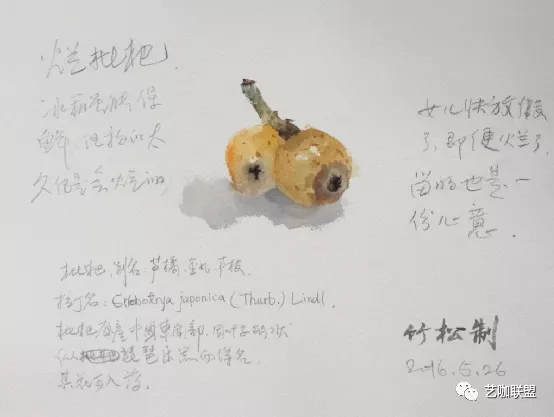 烂枇杷.
冰箱虽能保
鲜,但搁的太
久但是会烂的
女儿快放假
了,即便烂了,
留的也是一
份心意.
枇杷,别名:芦橘、金丸、芦枝.
拉丁名: Eriobotrya japonica (Thurb.) Lindl.
枇杷原產中国東南部,因叶子形状
似琵琶乐器而得名.
其花可入药.
竹松制
2016.5.26
艺咖联盟